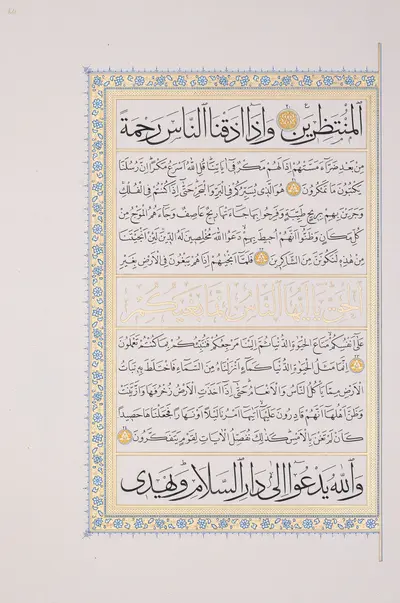 الْمُنْتَظِرِينَ وَإِذَا أَذَقْنَا النَّاسَ رَحْمَةً
مِنْ بَعْدِ ضَرَّاءَ مَسَّتْهُمْ إِذَا لَهُمْ مَكْرٌ فِي آيَاتِنَا قُلِ اللهُ أَسْرَعُ مَكْرًا إِنَّ رُسُلَنَا
يَكْتُبُونَ مَا تَمْكُرُونَ هُوَ الَّذِي يُسَيِّرُكُمْ فِي الْبَرِّ وَالْبَحْرِ حَتَّى إِذَا كُنْتُمْ فِي الْفُلْكِ
وَجَرَيْنَ بِهِمْ بِرِيحٍ طَيِّبَةٍ وَفَرِحُوا بِهَا جَاءَتْهَا رِيحٌ عَاصِفٌ وَجَاءَهُمُ الْمَوْجُ مِنْ
كُلِّ مَكَانٍ وَظَنُّوا أَنَّهُمْ أُحِيطَ بِهِمْ دَعَوُا اللهَ مُخْلِصِينَ لَهُ الدِّينَ لَئِنْ أَنْجَيْتَنَا
مِنْ هَذِهِ لَنَكُونَنَّ مِنَ الشَّاكِرِينَ فَلَمَّا أَنْجَيهُمْ إِذَا هُمْ يَبْغُونَ فِي الْأَرْضِ بِغَيْرِ
الْحَقِّ يَا أَيُّهَا النَّاسُ إِنَّمَا بَغْيُكُمْ
عَلَى أَنْفُسِكُمْ مَتَاعَ الْحَيَوةِ الدُّنْيَا ثُمَّ إِلَيْنَا مَرْجِعُكُمْ فَنُنَبِّئُكُمْ بِمَا كُنْتُمْ تَعْمَلُونَ
إِنَّمَا مَثَلُ الْحَيَوةِ الدُّنْيَا كَمَاءٍ أَنْزَلْنَاهُ مِنَ السَّمَاءِ فَاخْتَلَطَ بِهِ نَبَاتُ
الْأَرْضِ مِمَّا يَأْكُلُ النَّاسُ وَالْأَنْعَامُ حَتَّى إِذَا أَخَذَتِ الْأَرْضُ زُخْرُفَهَا وَازَّيَّنَتْ
وَظَنَّ أَهْلُهَا أَنَّهُمْ قَادِرُونَ عَلَيْهَا أَتَيهَا أَمْرُنَا لَيْلًا أَوْ نَهَارًا فَجَعَلْنَاهَا حَصِيدًا
كَأَنْ لَمْ تَغْنَ بِالْأَمْسِ كَذَلِكَ نُفَصِّلُ الْآيَاتِ لِقَوْمٍ يَتَفَكَّرُونَ
وَاللهُ يَدْعُوا إِلَى دَارِ السَّلَامِ وَيَهْدِي